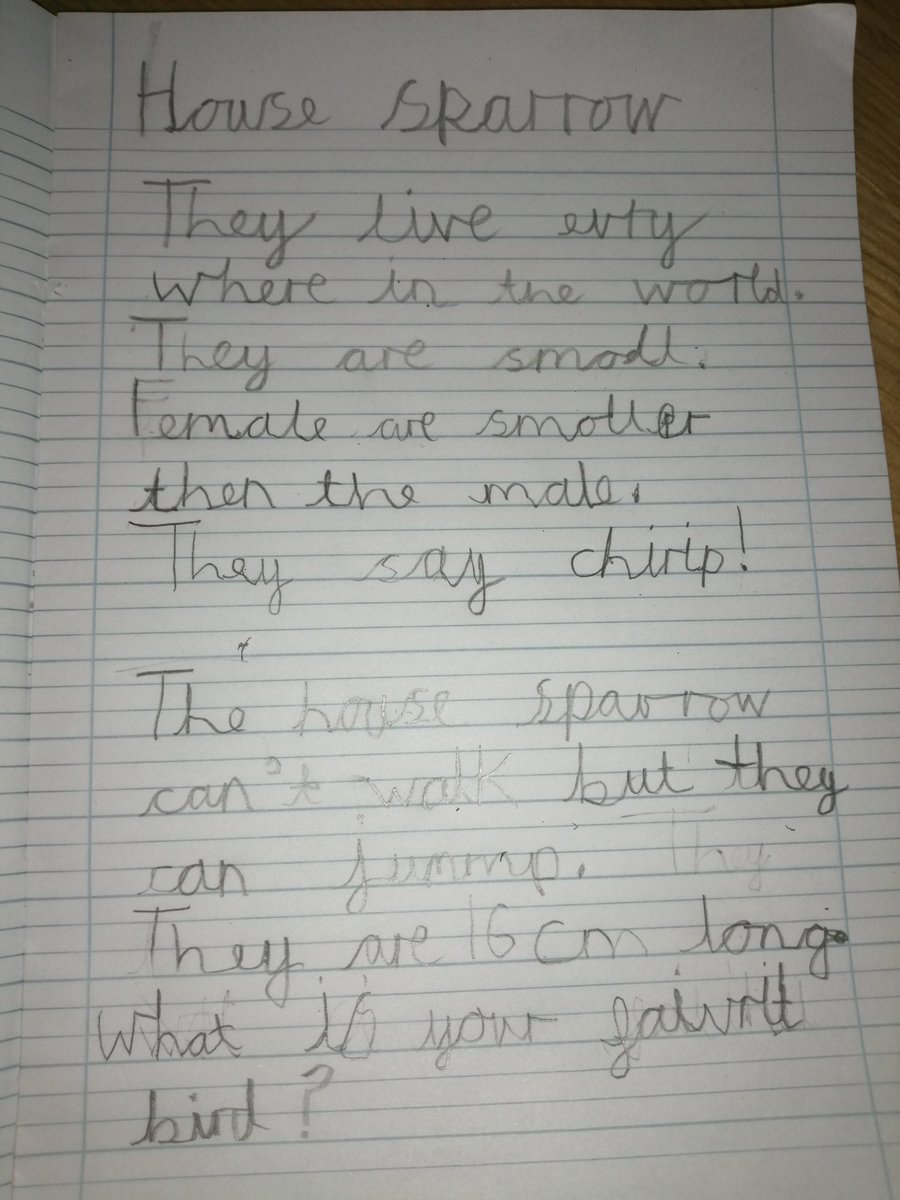 House sparrow
They live evry
where in the world.
They are small.
Female are smaller
then the male.
They say chirip!
The house sparrow
can't walk but they
can jump. They
They are 16 cm long.
What is your faivrit
bird?